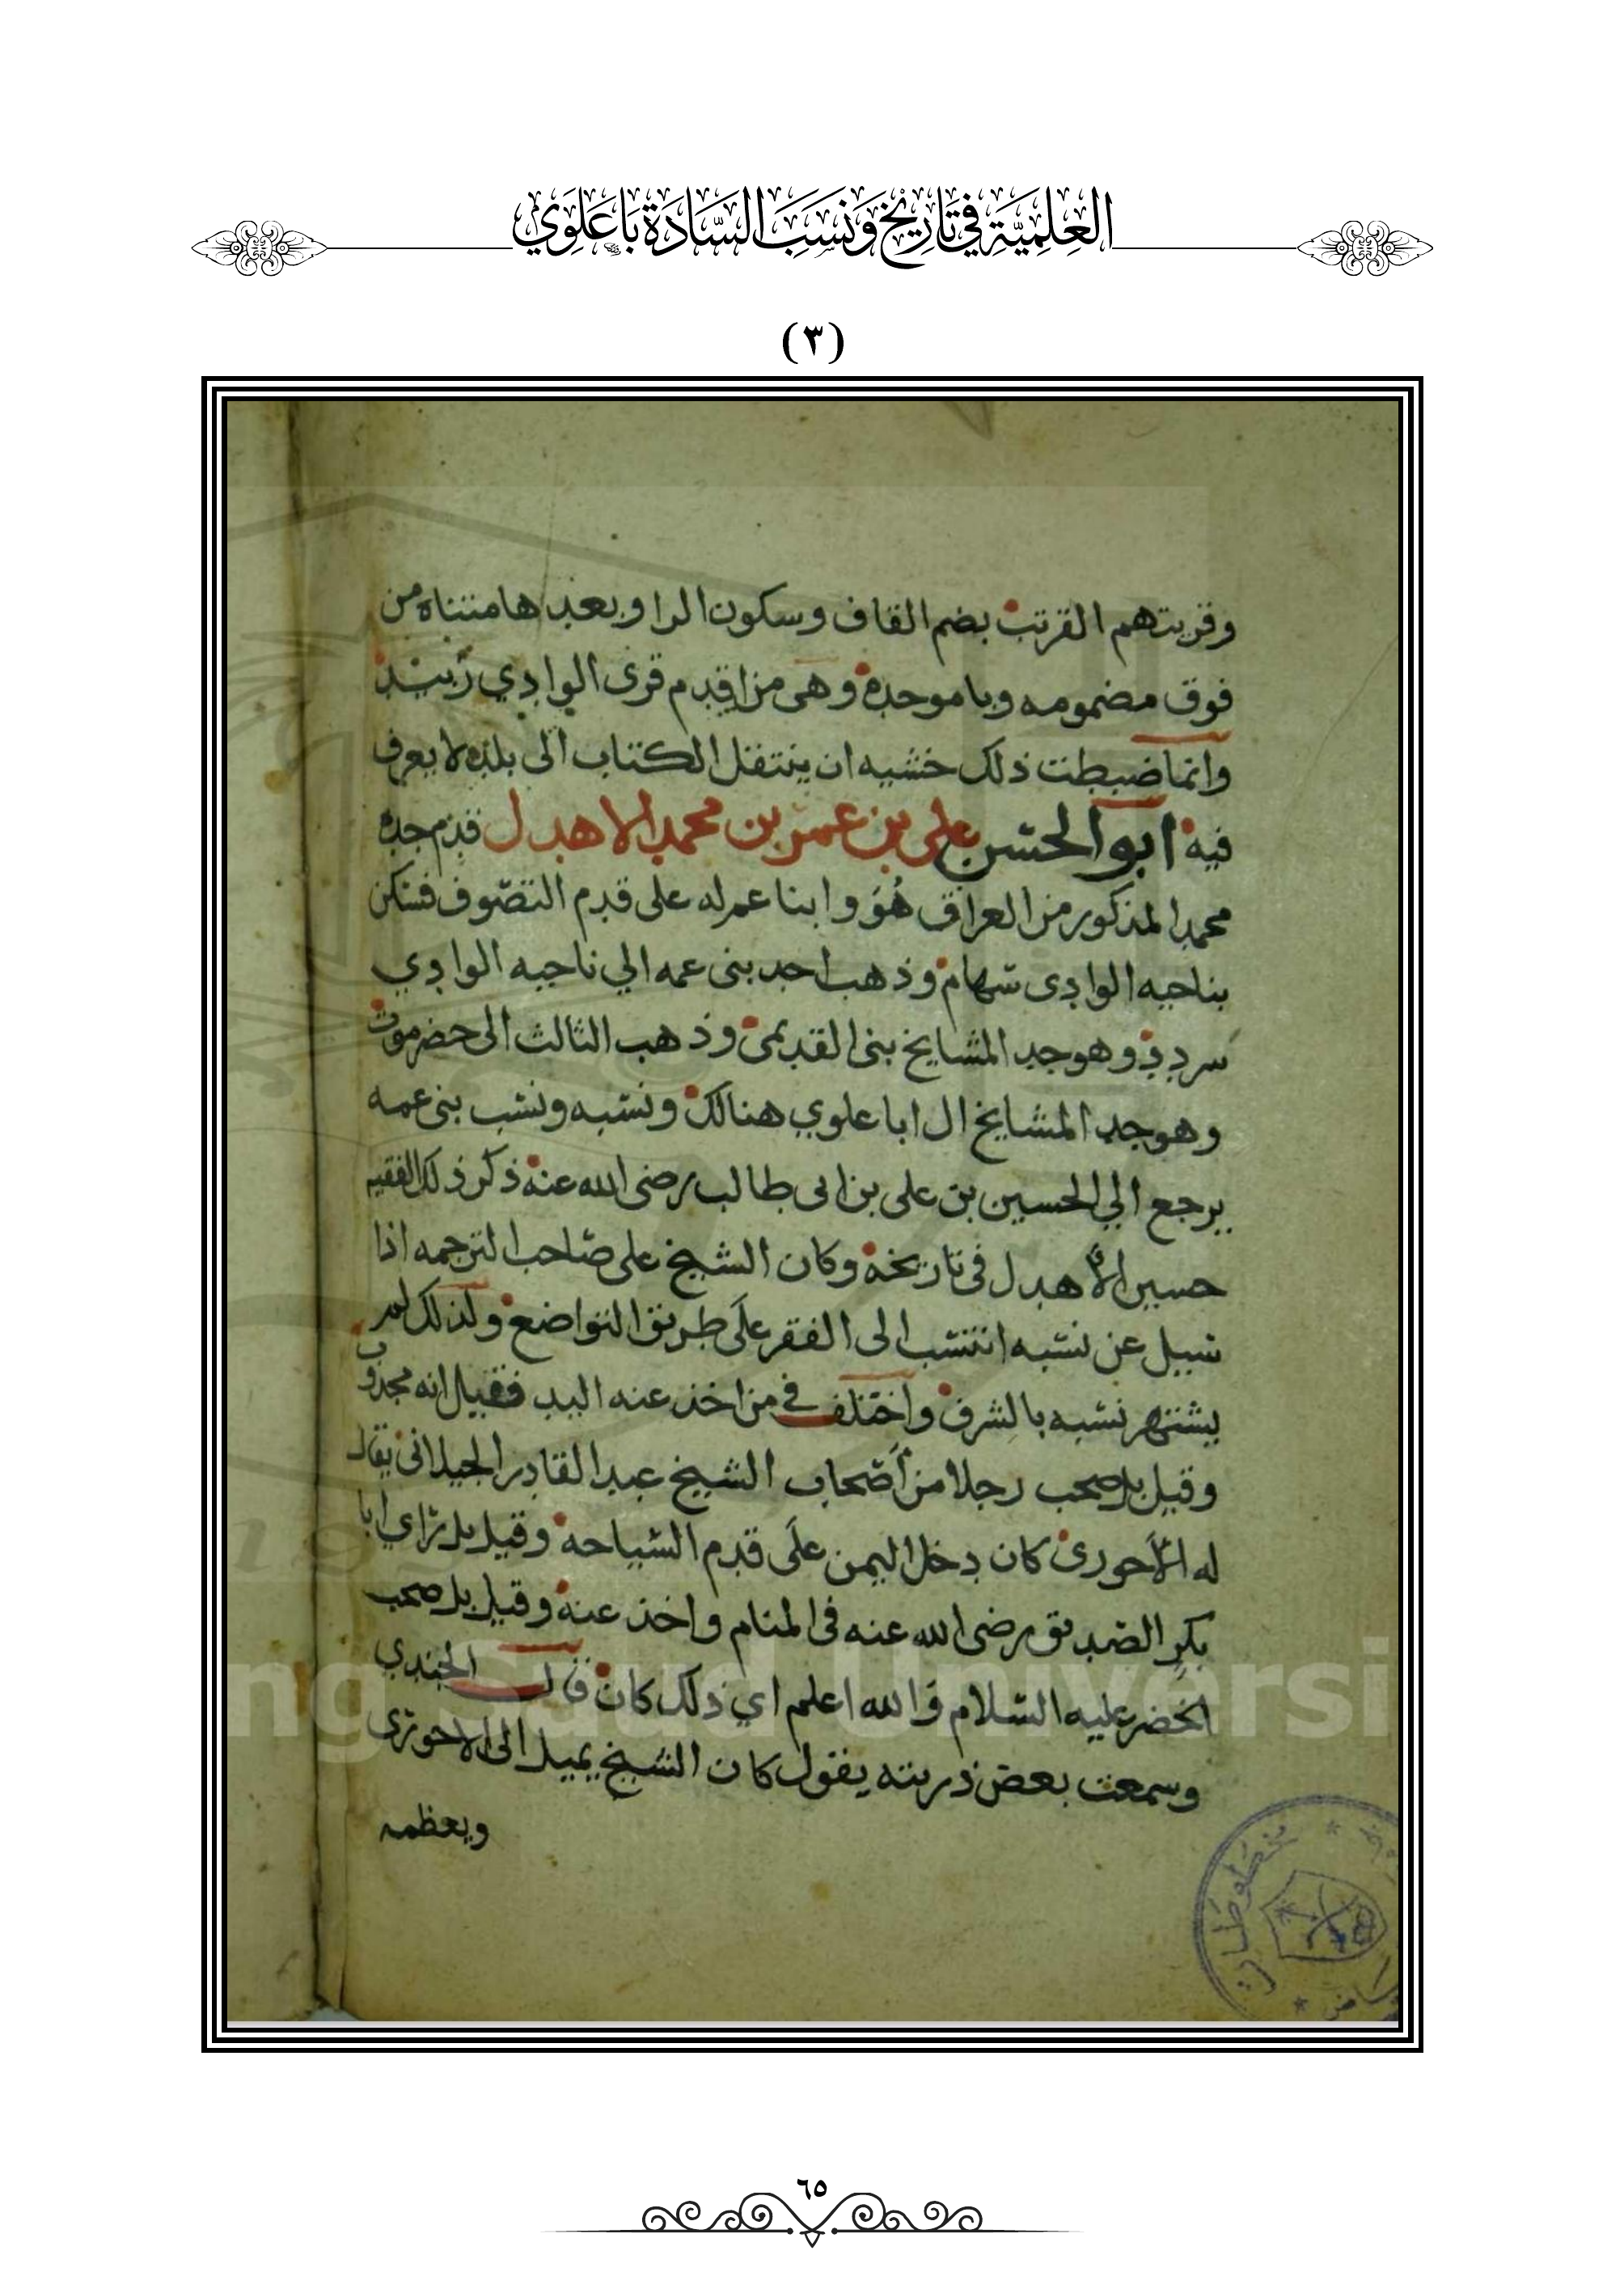 العِلْمِيَّةِ فِي تَارِيْخِ وَنَسَبِ السَّادَةِ بَاعَلَوِي
(٣)
وقريتهم القرتب بضم القاف وسكون الرا وبعدها مثناه من
فوق مضمومه وبا موحده وهى من اقدم قرى الوادي زبيد
وانما ضبطت ذلك خشيه ان ينتقل الكتاب الى بلده لا يعرف
فيه ابو الحسن على بن عمر بن محمد الاهدل قدم جده
محمد المذكور من العراق هُوَ وابنا عم له على قدم التصّوف فسكن
بناحيه الوادى سهام وذهب احد بنى عمه الي ناحيه الوادي
سردد وهو جد المشايخ بنى القديمى وذهب الثالث الى حضرموت
وهو جد المشايخ ال ابا علوي هنالك ونسبه ونسب بنى عمه
يرجع الي الحسين بن على بن ابى طالب رضى الله عنه ذكر ذلك الفقيه
حسين الأهدل فى تاريخه وكان الشيخ على صاحب الترجمه اذا
سيل عن نسبه انتسب الى الفقر علَى طريق التواضع ولذلك لم
يشتهر نسبه بالشرف واختلف في من اخذ عنه اليد فقيل انه مجذوب
وقيل بل صحب رجلا من أصحاب الشيخ عبد القادر الجيلانى يقال
له الأحورى كان دخل اليمن علَى قدم السياحه وقيل بل راي ابا
بكر الصديق رضى الله عنه فى المنام واخذ عنه وقيل بل صحب
الخضر عليه السلام والله اعلم اي ذلك كان قال الجندي
وسمعت بعض ذريته يقول كان الشيخ يميل الى الاحورى
ويعظمه
King Saud Universi
مخطوطات
٦٥